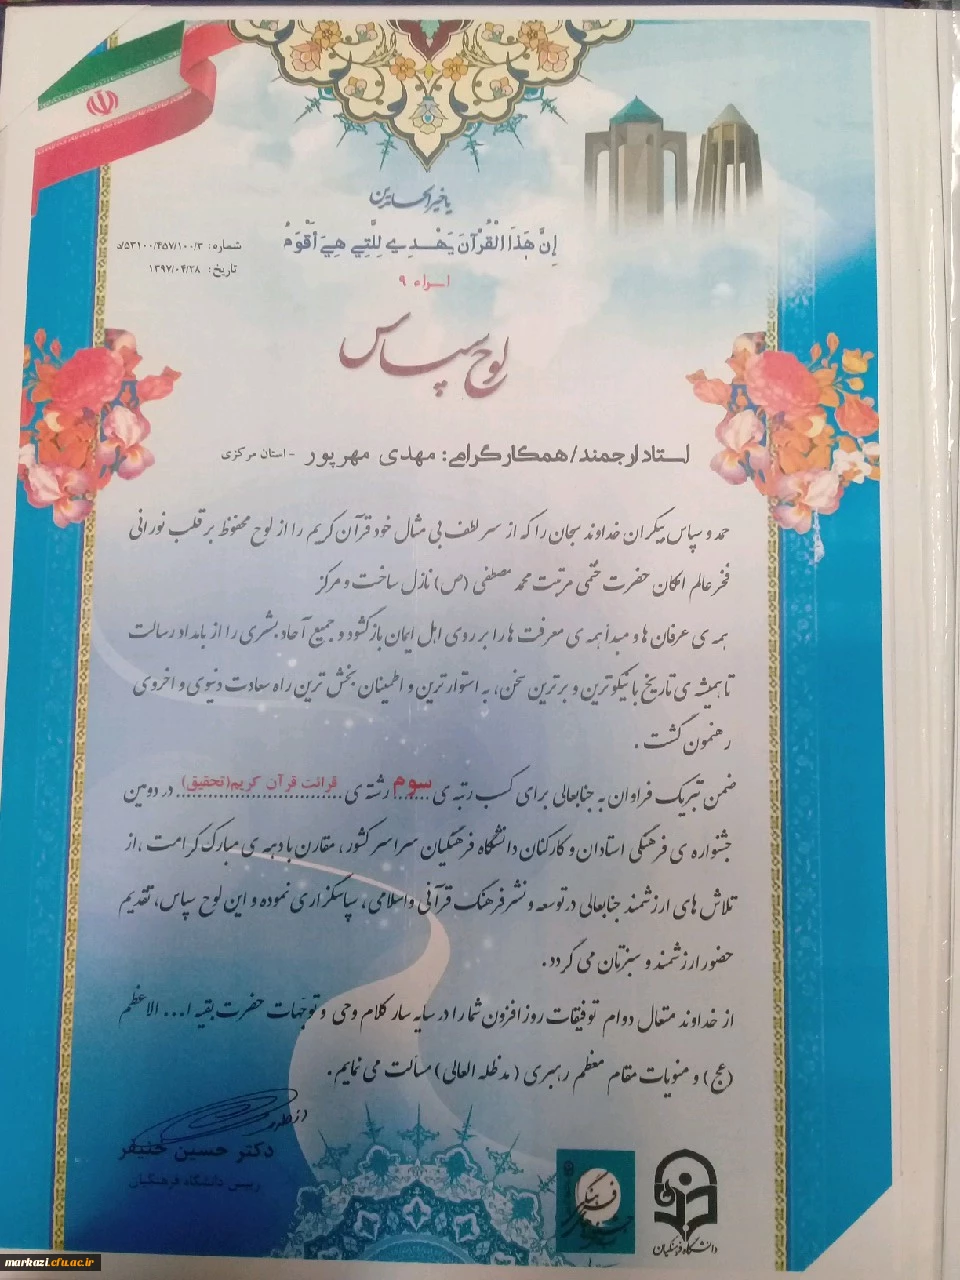 یا خیر الحامدین
إِنَّ هَذَا الْقُرْآنَ يَهْدِي لِلَّتِي هِيَ أَقْوَمُ
اسراء ۹
شماره: ۵۳۱۰۰/۴۵۷/۱۰۰/۳/د
تاریخ: ۱۳۹۷/۰۴/۲۸
لوح سپاس
استاد ارجمند/همکار گرامی: مهدی مهرپور - استان مرکزی
حمد و سپاس بیکران خداوند سبحان را که از سر لطف بی مثال خود قرآن کریم را از لوح محفوظ بر قلب نورانی
فخر عالم امکان حضرت ختمی مرتبت محمد مصطفی (ص) نازل ساخت و مرکز
همه ی عرفان ها و مبدأ همه ی معرفت ها را بر روی اهل ایمان باز گشود و جمیع آحاد بشری را از بامداد رسالت
تا همیشه ی تاریخ با نیکوترین و برترین سخن، به استوارترین و اطمینان بخش ترین راه سعادت دنیوی و اخروی
رهنمون گشت .
ضمن تبریک فراوان به جنابعالی برای کسب رتبه ی سوم رشته ی قرائت قرآن کریم(تحقیق) در دومین
جشنواره ی فرهنگی استادان و کارکنان دانشگاه فرهنگیان سراسر کشور، مقارن با دهه ی مبارک کرامت ، از
تلاش های ارزشمند جنابعالی در توسعه و نشر فرهنگ قرآنی و اسلامی ، سپاسگزاری نموده و این لوح سپاس، تقدیم
حضور ارزشمند و سبزتان می گردد .
از خداوند متعال دوام توفیقات روز افزون شما را در سایه سار کلام وحی و توجهات حضرت بقیه ا... الاعظم
(عج) و منویات مقام معظم رهبری (مدظله العالی) مسألت می نمایم .
دکتر حسین خنیفر
رییس دانشگاه فرهنگیان
دانشگاه فرهنگیان
markazi.cfu.ac.ir